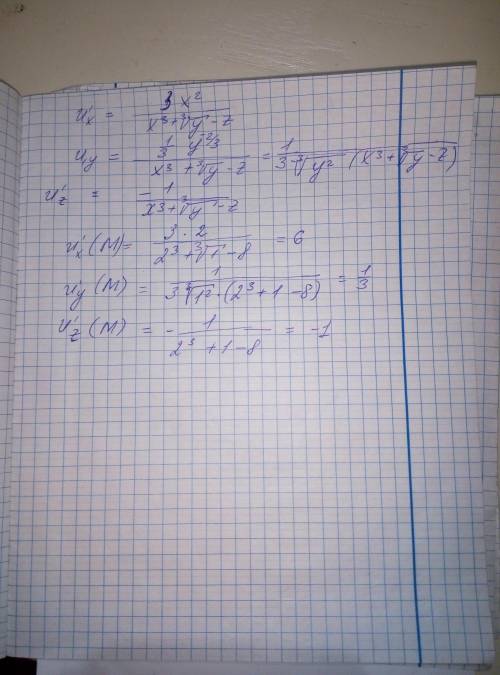 u'x = 3x² / (x³ + ∛y - z)
u'y = (1/3 y^(-2/3)) / (x³ + ∛y - z) = 1 / (3∛y² (x³ + ∛y - z))
u'z = -1 / (x³ + ∛y - z)
u'x (M) = (3 · 2) / (2³ + ∛1 - 8) = 6
u'y (M) = 1 / (3∛1² · (2³ + 1 - 8)) = 1/3
u'z (M) = - 1 / (2³ + 1 - 8) = -1